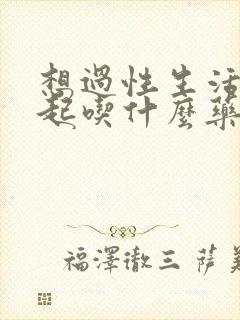 想過性生活
起喫什麼藥
福澤徹三 薩